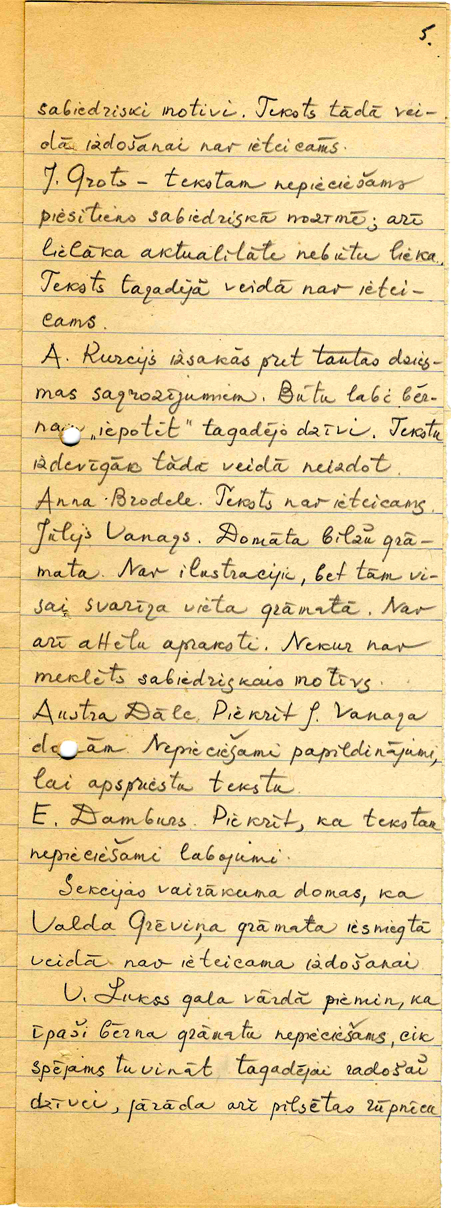 5.
sabiedriski motivi. Teksts tādā vei-
dā izdošanai nav ieteicams.
J. Grots – tekstam nepieciešams
piesitiens sabiedriskā nozīmē; arī
lielāka aktualitāte nebūtu lieka.
Teksts tagadējā veidā nav ietei-
cams.
A. Kurcijs izsakās pret tautas dzies-
mas sagrozījumiem. Būtu labi bēr-
nam „iepotēt" tagadējo dzīvi. Tekstu
izdevīgāk tādā veidā neizdot.
Anna Brodele. Teksts nav ieteicams.
Jūlijs Vanags. Domāta bilžu grā-
mata. Nav ilustrāciju, bet tām vi-
sai svarīga vieta grāmatā. Nav
arī attēlu apraksti. Nekur nav
meklēts sabiedriskais motīvs.
Austra Dāle. Piekrīt J. Vanaga
domām. Nepieciešami papildinājumi,
lai apspriestu tekstu.
E. Damburs. Piekrīt, ka tekstam
nepieciešami labojumi.
Sekcijas vairākuma domas, ka
Valda Grēviņa grāmata iesniegtā
veidā nav ieteicama izdošanai.
V. Lukss gala vārdā piemin, ka
īpaši bērna grāmatu nepieciešams, cik
spējams tuvināt tagadējai radošai
dzīvei, jārāda arī pilsētas rūpnīca